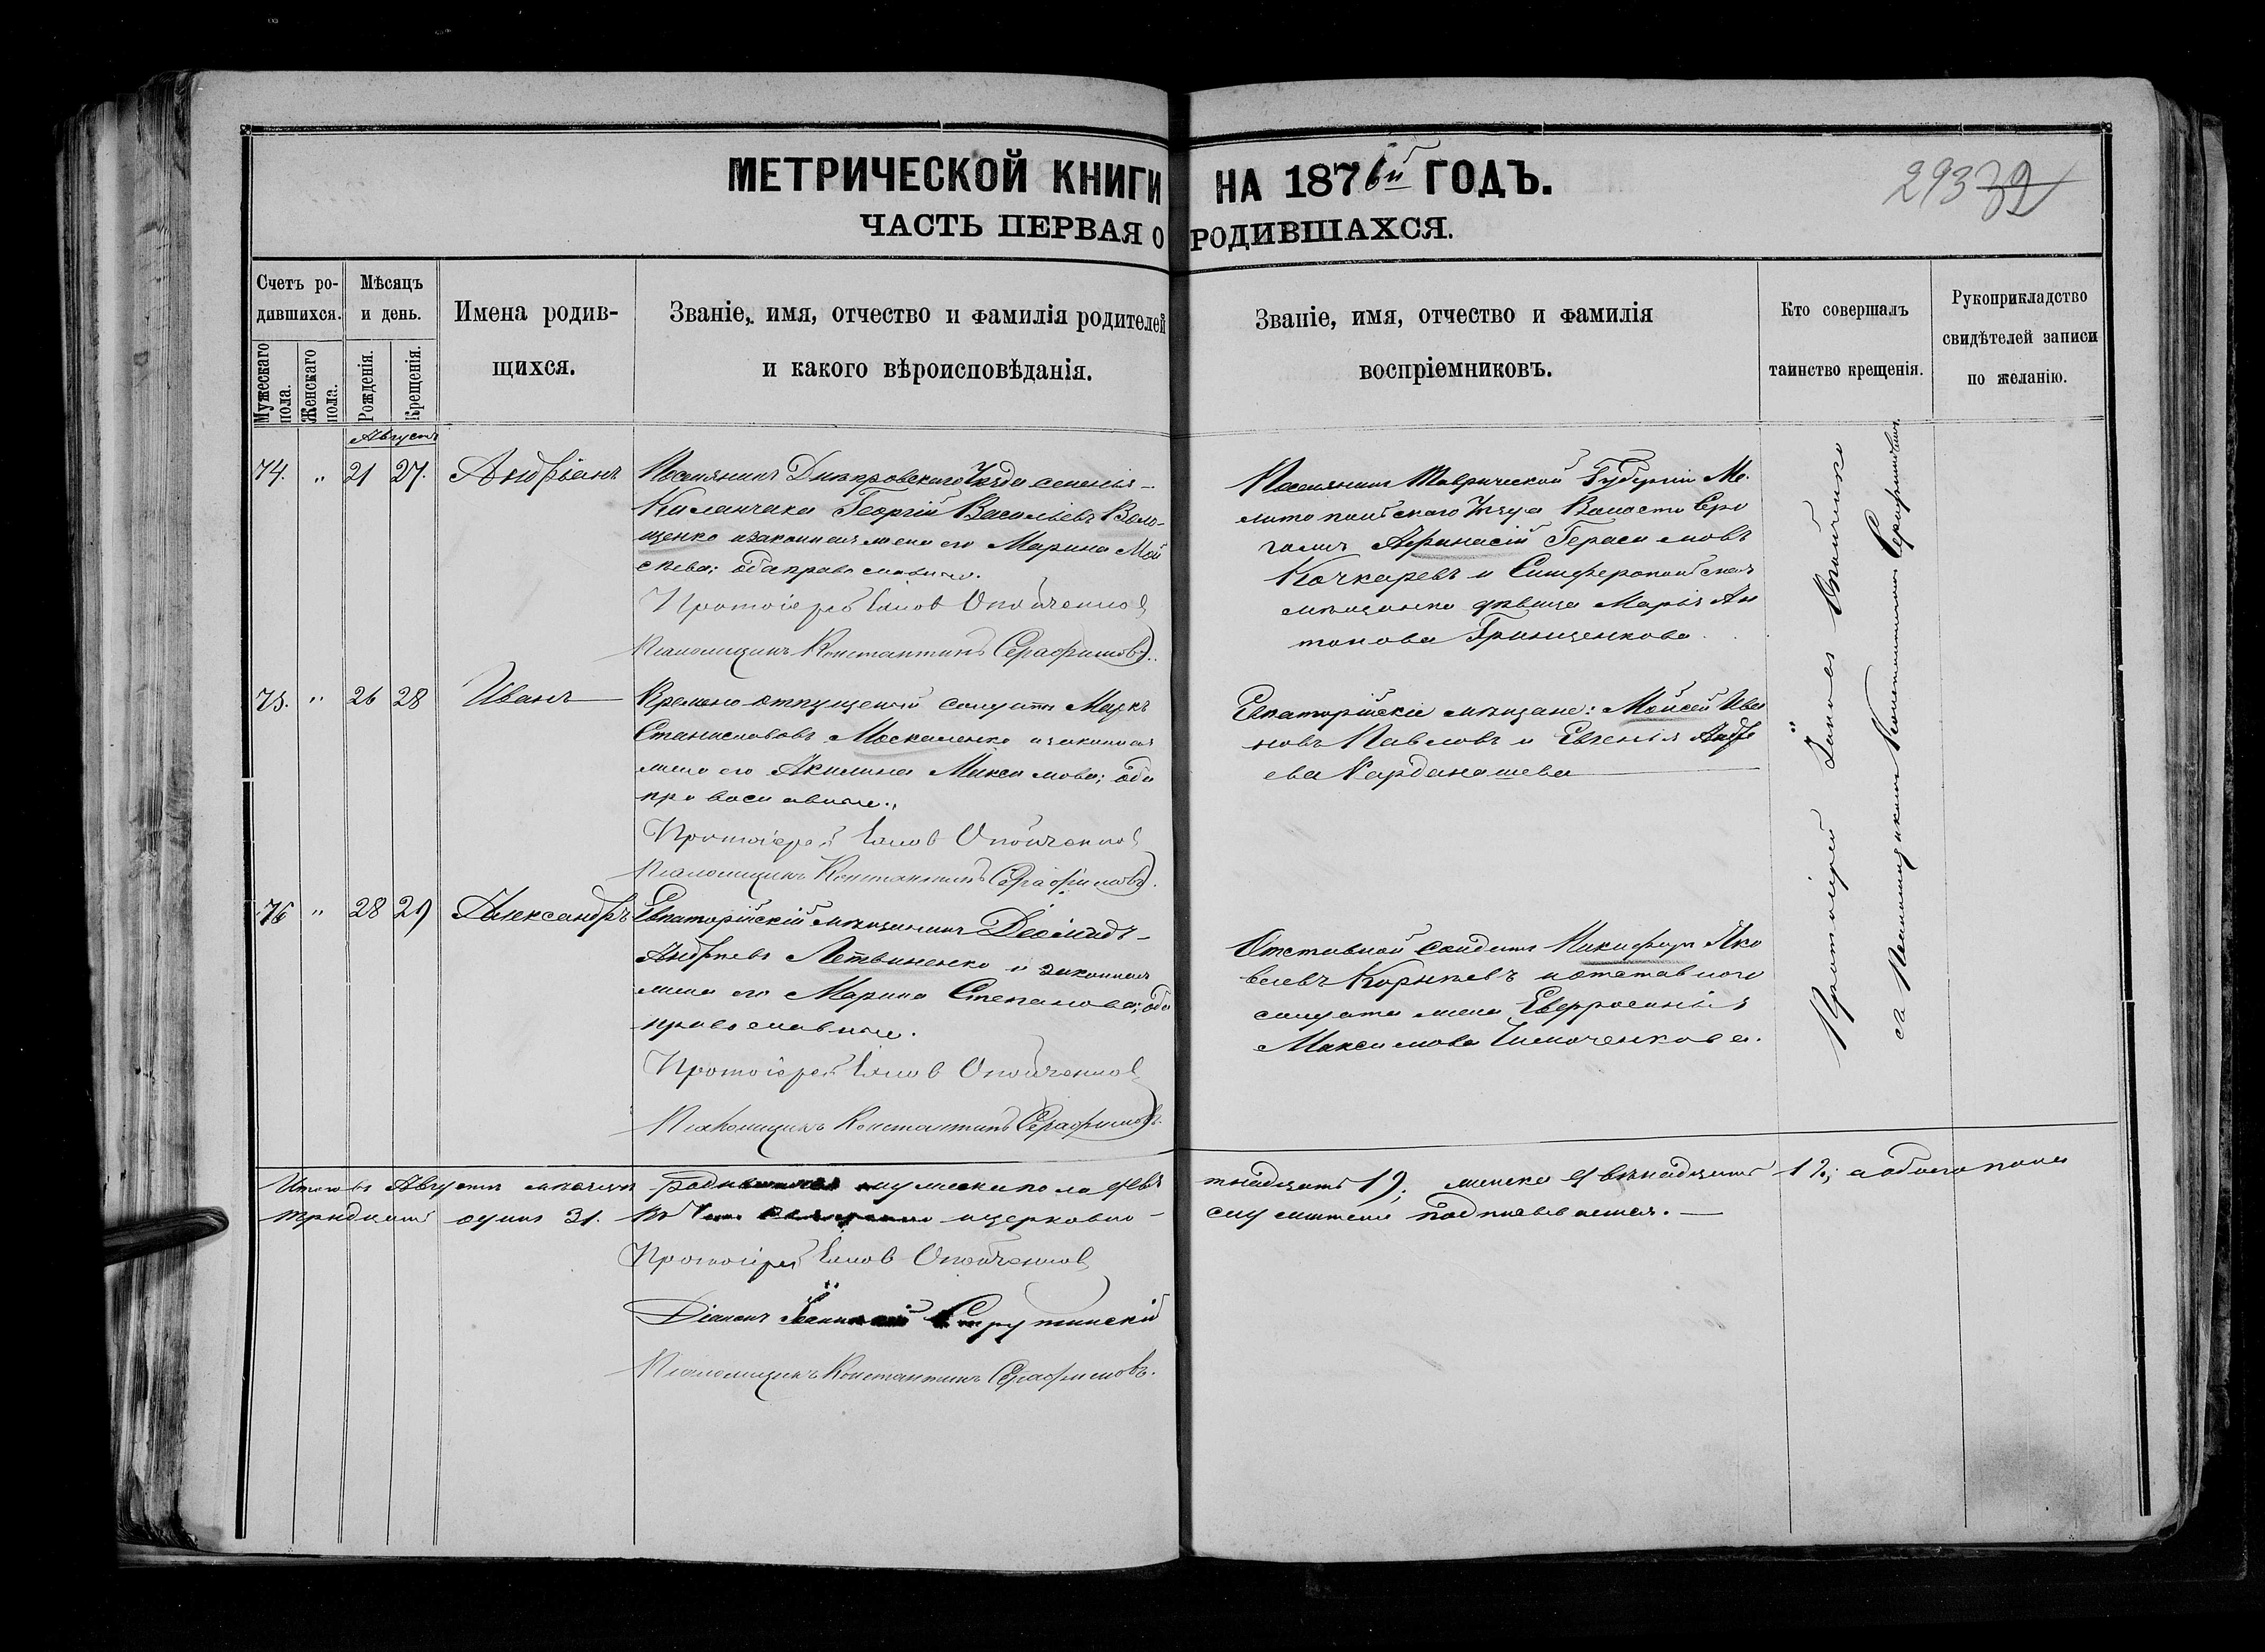 МЕТРИЧЕСКОЙ КНИГИ НА 1876й ГОДЪ.
29332
ЧАСТЬ ПЕРВАЯ О РОДИВШАХСЯ.
Счетъ ро-
дившихся.
Мужескаго пола.
Женскаго пола.
Мѣсяцъ
и день.
Рожденія.
Крещенія.
Имена родив-
щихся.
Званіе, имя, отчество и фамилія родителей
и какого вѣроисповѣданія.
Званіе, имя, отчество и фамилія
воспріемниковъ.
Кто совершалъ
таинство крещенія.
Рукоприкладство
свидѣтелей записи
по желанію.
Августъ
74. " 21 27. Андріанъ
Поселянинъ Днѣпровскаго Уѣзда селенія
Каланчака Георгій Васильевъ Воло-
щенко и законная жена его Марина Мой
сеева; оба православные.
Протоіерей Іаковъ
Псаломщикъ Константинъ Серафимовъ.
Поселянинъ Таврической Губерніи Ме-
литопольскаго Уѣзда Волости Серо
гозъ Афанасій Герасимовъ
Кочкаревъ и Симферопольская
мѣщанка дѣвица Марія Ан
тонова Грищенкова.
75. " 26 28 Иванъ
Временно отпущеный солдатъ Маркъ
Станиславовъ Москаленко и законная
жена его Акилина Максимова; оба
православные.
Протоіерей Іаковъ
Псаломщикъ Константинъ Серафимовъ.
Евпаторійскіе мѣщане: Мойсей Ива
новъ Павловъ и Евгенія Андре
ева Карданашева
76 " 28 29 Александръ
Евпаторійскій мѣщанинъ Діомидъ
Андреевъ Летвиненко и законная
жена его Марина Степанова; оба
православные.
Протоіерей Іаковъ
Псаломщикъ Константинъ Серафимовъ.
Отставной солдатъ Никифоръ Яко
влевъ Корнѣевъ и отставного
солдата жена Евфросинія
Максимова
Протоіерей Іаковъ
съ Псаломщикомъ Константиномъ Серафимовымъ
Итого въ Августѣ мѣсяцѣ родившихся мужеска пола девя
тнадцать 19; женска двѣнадцать 12; а обоего пола
тридцать одинъ 31. и церковно-
служители подписываемся.
Протоіерей Іаковъ
Діаконъ Струтинскій
Псаломщикъ Константинъ Серафимовъ.